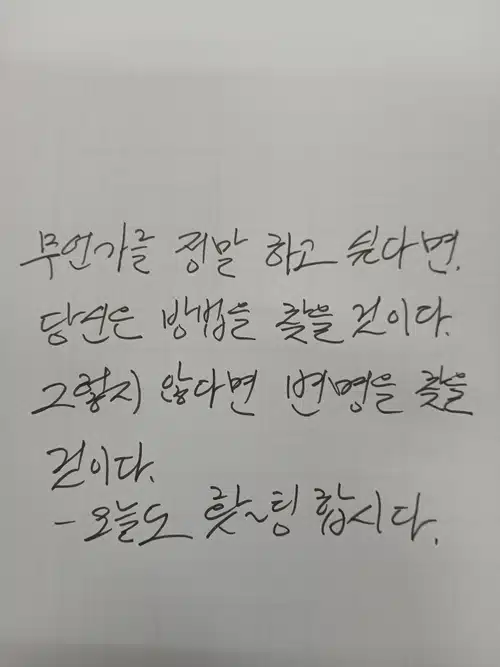 무언가를 정말 하고 싶다면.
당신은 방법을 찾을 것이다.
그렇지 않다면 변명을 찾을
것이다.
- 오늘도 홧~팅 합시다.